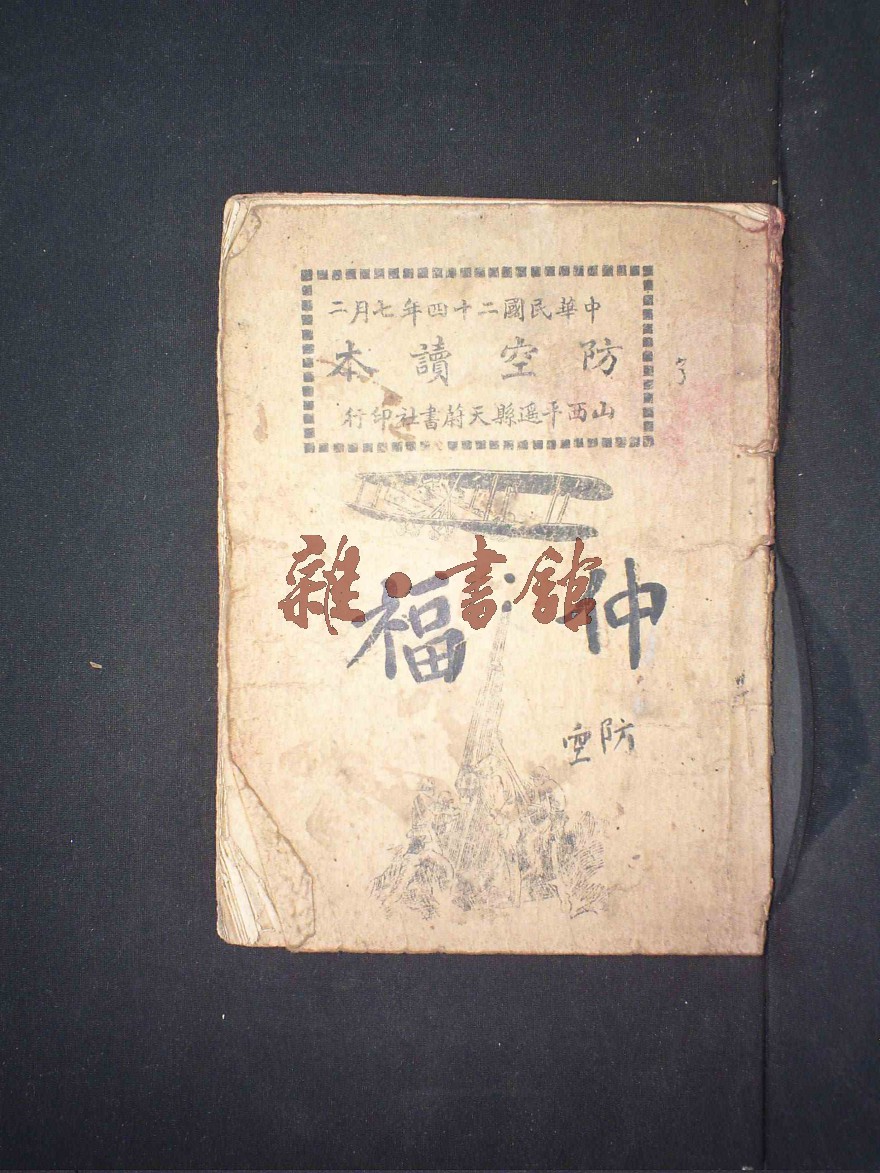 中華民國二十四年七月二
防空讀本
山西平遥縣天蔚書社印行
雜·書館
仲福
防空